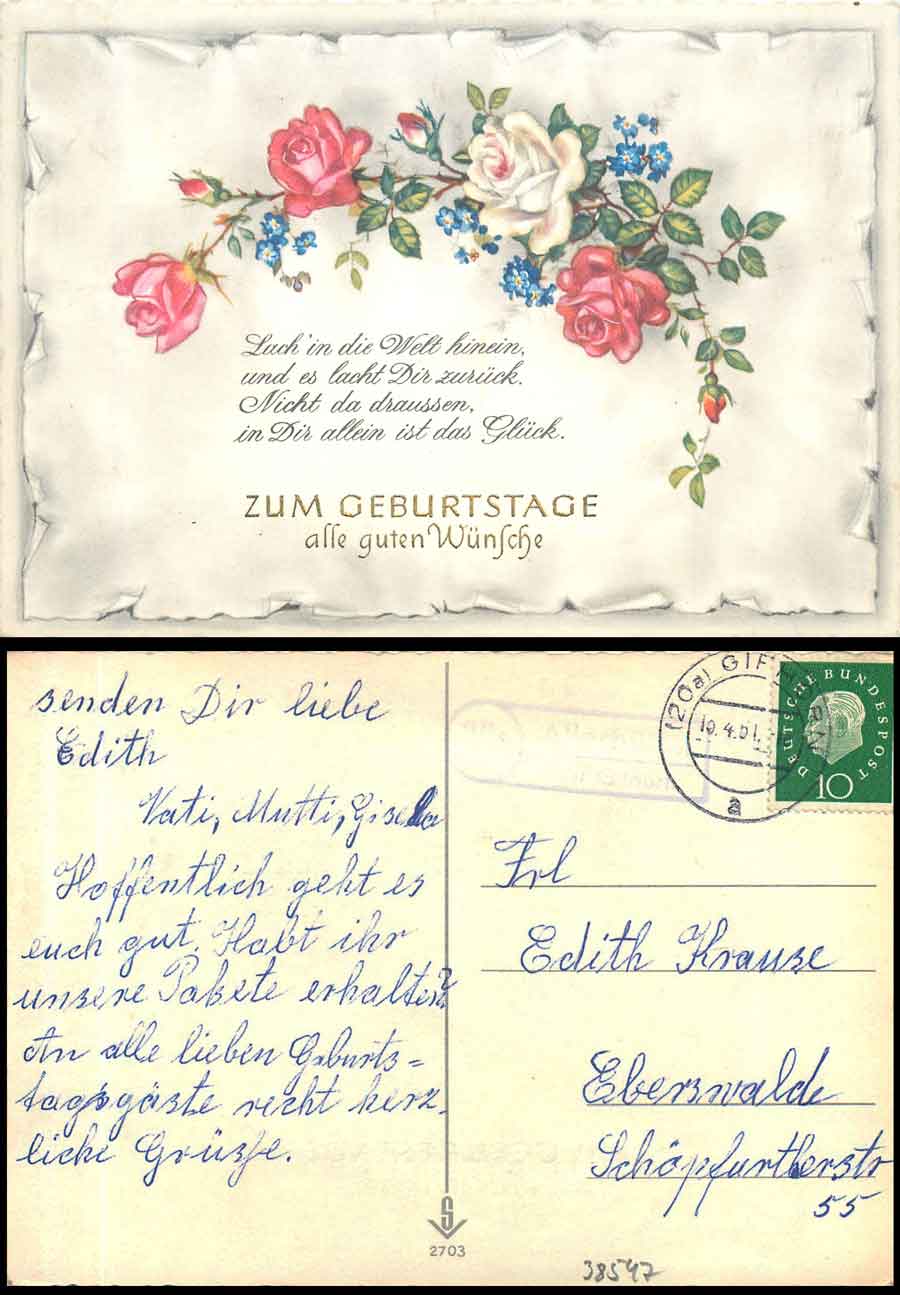 Lach' in die Welt hinein,
und es lacht Dir zurück.
Nicht da draussen,
in Dir allein ist das Glück.
ZUM GEBURTSTAGE
alle guten Wünſche
senden Dir liebe
Edith
Vati, Mutti, Gisela
Hoffentlich geht es
euch gut. Habt ihr
unsere Pakete erhalten?
An alle lieben Geburts=
tagsgäste recht herz-
liche Grüsse.
(20a) GIFHORN
10.4.61
a
DEUTSCHE BUNDESPOST
10
Frl
Edith Krause
Eberswalde
Schöpfurtherstr
55
S
2703
38547